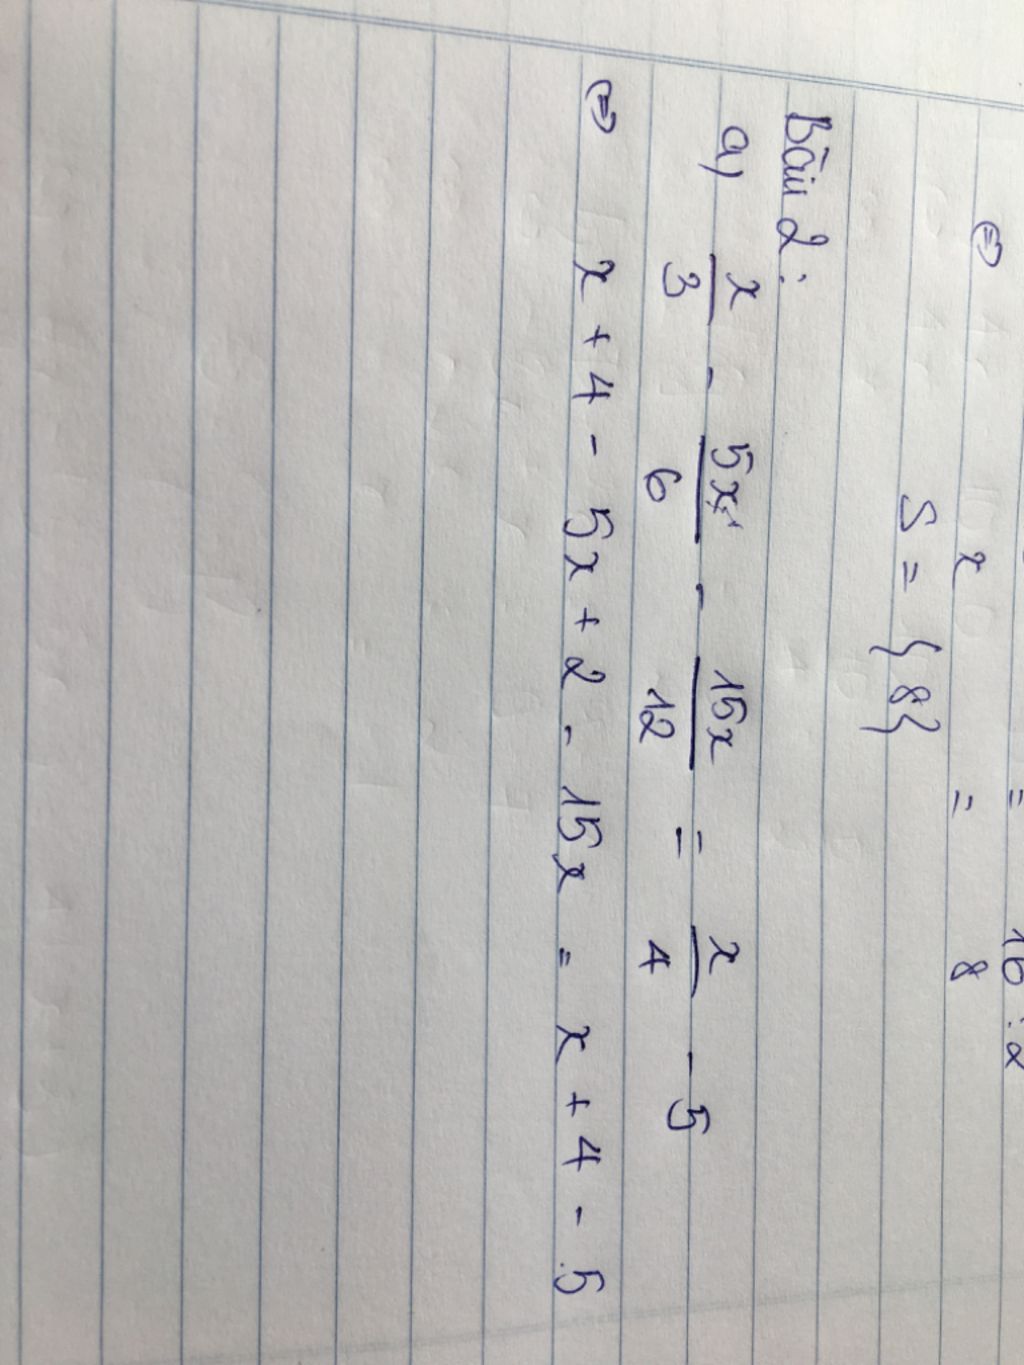 = 16 : 2
⇔ x = 8
S = {8}
Bài 2:
a) x/3 - 5x/6 - 15x/12 = x/4 - 5
⇔ x + 4 - 5x + 2 - 15x = x + 4 - 5